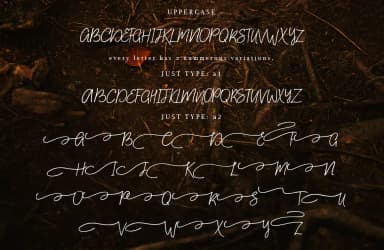 UPPERCASE
ABCDEFGHIJKLMNOPQRSTUVWXYZ
every letter has a nummerous variations.
JUST TYPE: a1
ABCDEFGHIJKLMNOPQRSTUVWXYZ
JUST TYPE: a2
A B C D E F G
H I J K L M N
O P Q R S T U
V W X Y Z